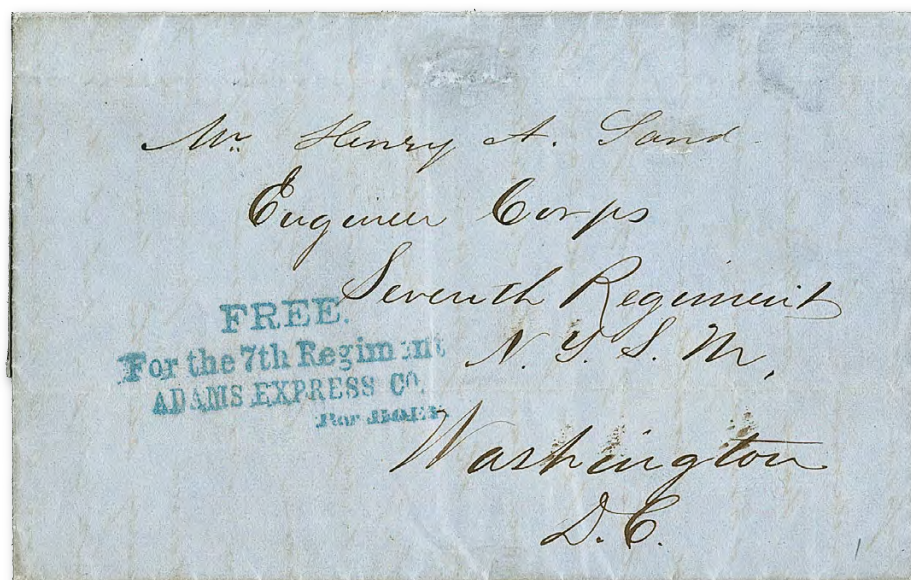 Mr. Henry A. Sand
Engineer Corps
Seventh Regiment
N. Y. S. M,
Washington
D. C.
FREE.
For the 7th Regiment
ADAMS EXPRESS CO.
Per
1